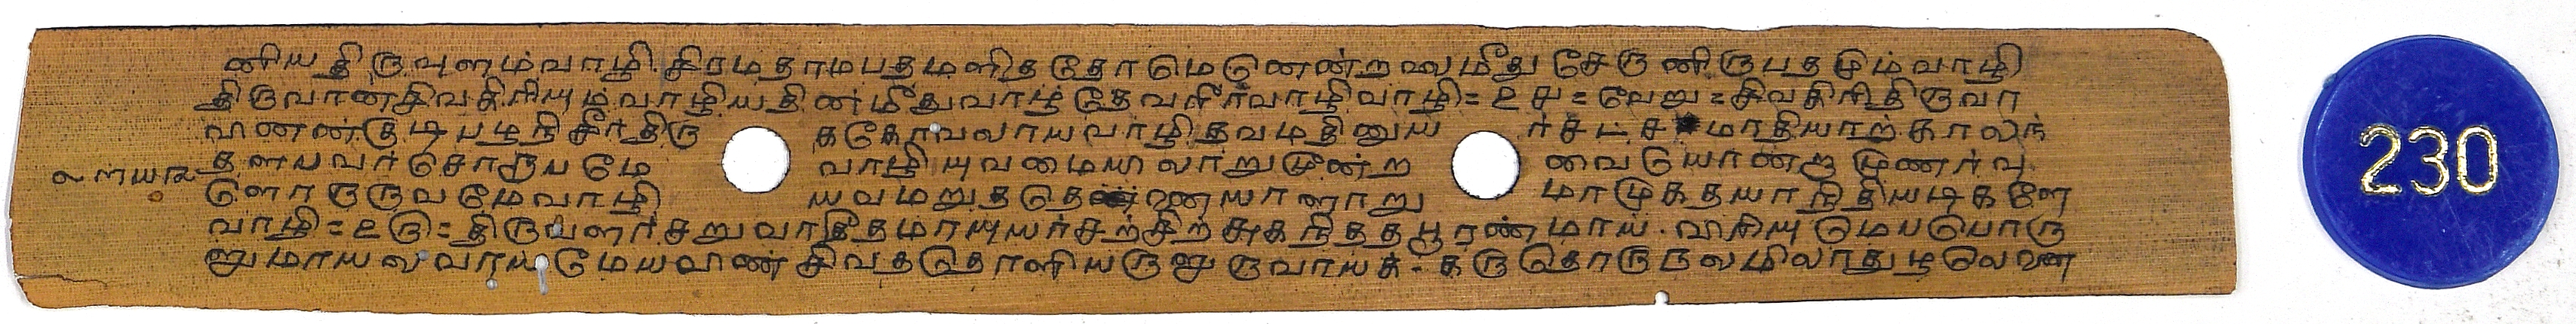 ணியதிருவுளம்வாழி. சிரமதாமபதமளித்தோமெனென்றவமீது சேருணிருபதமும்வாழி
திருவானசிவகிரியும்வாழியதின்மீதுவாழ்தேவளிர்வாழிவாழி = உச = வேறு = சிவகிரிதிருவா
வணண்குடிபழநிசீர்திரு கதேரவலாயவாழி தவமதினுய ர்ச்சட்ச மாதியாற்காலந்
தளயவர்சொரூபமே வாழியுவமையிலாறுமூன்ற வையொன்று முணர்வு
ளொருருவமேவாழி யவமறுத்தெணணயானாறு மாமுகதயாநிதியடிகளே
வாழி = உரு = திருவளர்சறுவாதீதமாயுயர்சற்சிற்சுகநித்தபூரண்மாய். வரியுமெயபொரு
ளுமாயவவாயுமேயவண் சிவத்தொளியருளுருவாய்க். கருதொருருவமிலாதுழலெவண
230